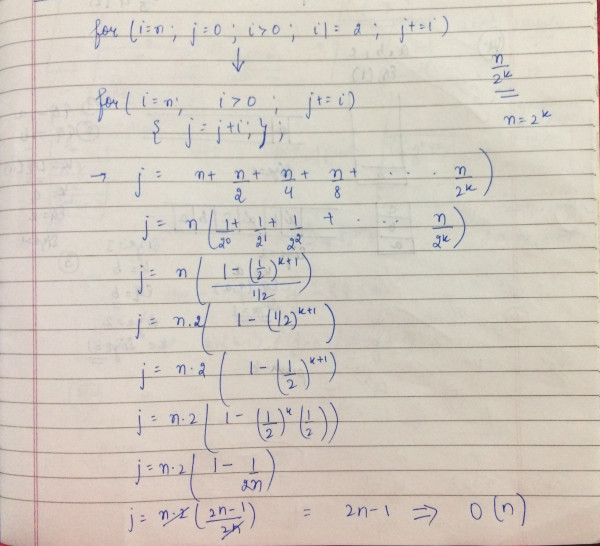 for (i=n; j=0; i>0; i/=2; j+=i)
↓
for( i=n; i>0; j+=i)
{ j=j+i; };
n/2^k
n=2^k
→ j = n+ n/2 + n/4 + n/8 + . . . . n/2^k)
j = n(1/2^0 + 1/2^1 + 1/2^2 + . . . n/2^k)
j = n( (1-(1/2)^k+1) / 1/2 )
j = n.2( 1-(1/2)^k+1 )
j = n.2 ( 1-(1/2)^k+1 )
j = n.2( 1-(1/2)^k (1/2))
j=n.2( 1- 1/2n)
j= n.2( (2n-1)/2n ) = 2n-1 ⇒ O(n)